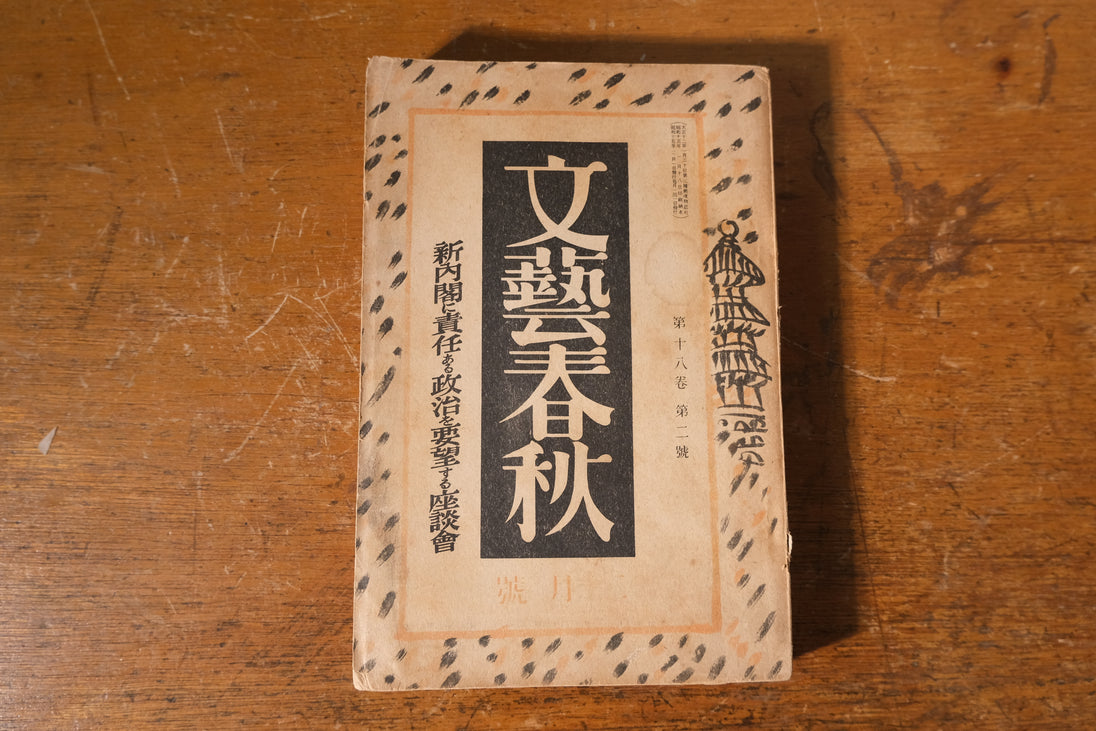 文藝春秋
第十八卷 第二號
新內閣に責任ある政治を要望する座談會
號月二